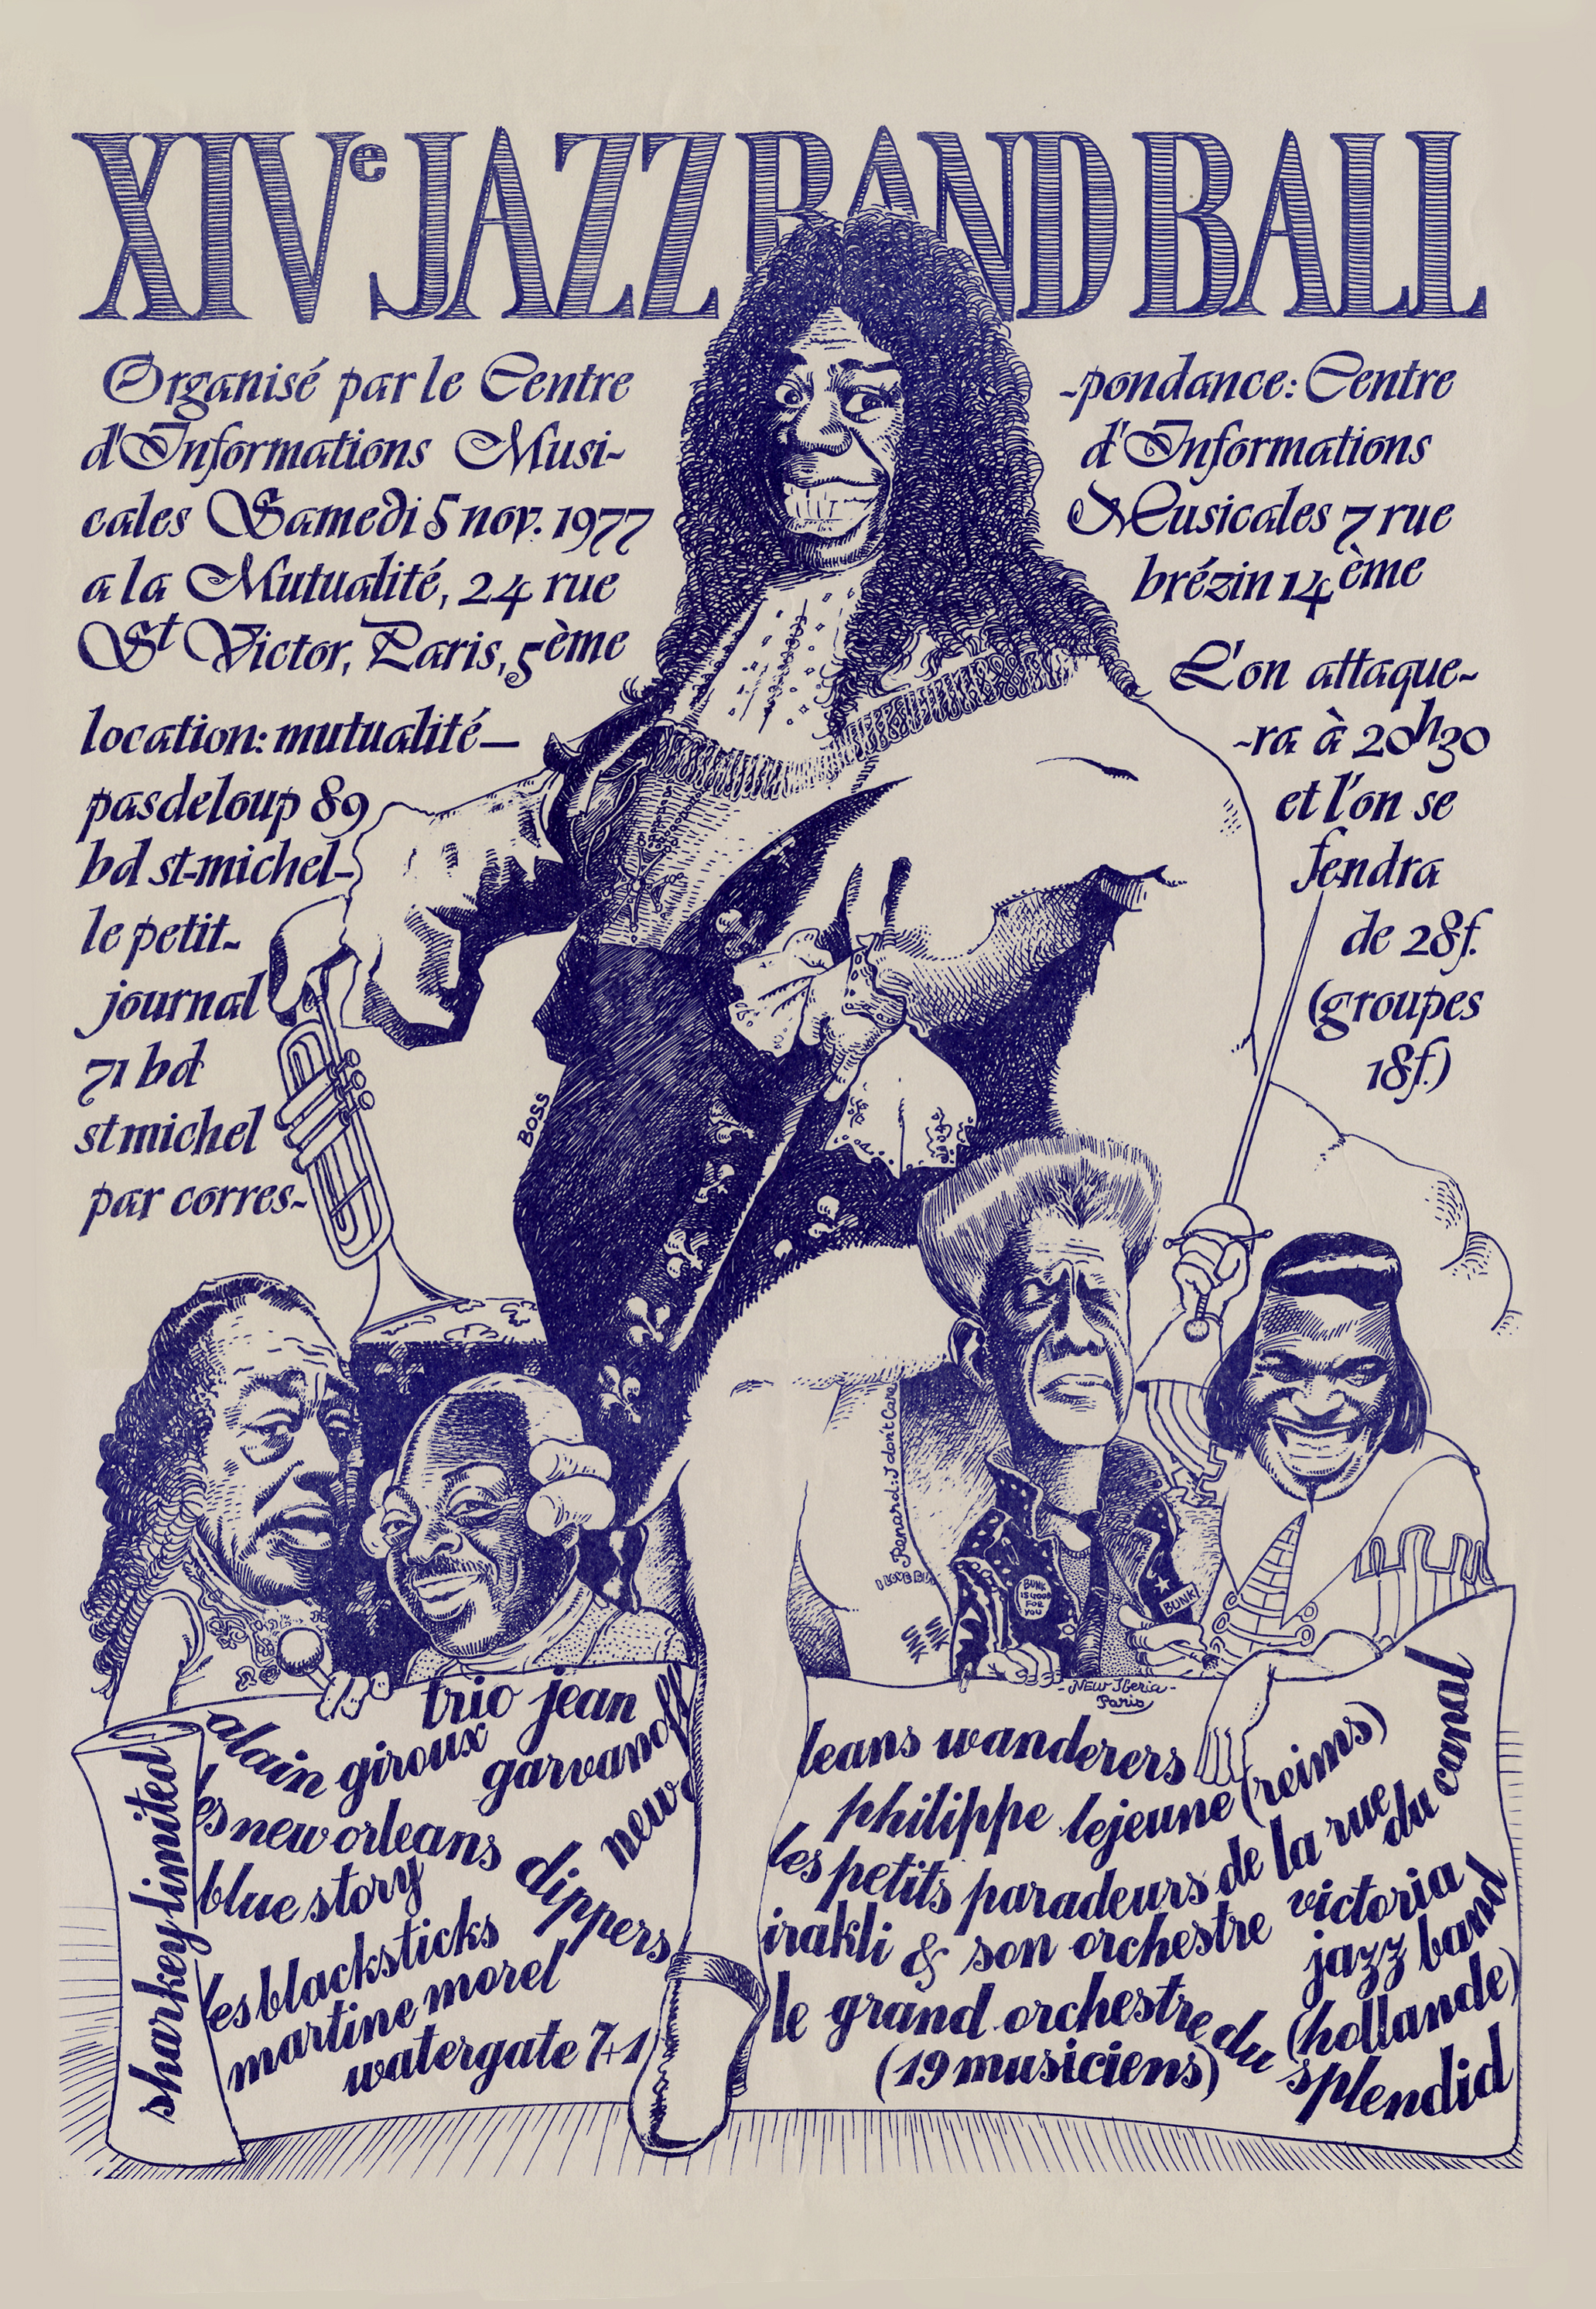 XIVe JAZZ BAND BALL
Organisé par le Centre
d'Informations Musi-
cales Samedi 5 nov. 1977
a la Mutualité, 24 rue
St Victor, Paris, 5ème
location: mutualité—
pasdeloup 89
bd st-michel-
le petit-
journal
71 bd
st michel
par corres-
-pondance: Centre
d'Informations
Musicales 7 rue
brézin 14ème
L'on attaque-
-ra à 20h30
et l'on se
fendra
de 28f.
(groupes
18f.)
BOSS
Renard: I don't Care
I LOVE
BUNK
IS GOOD
FOR
YOU
BUNK!
-New Iberia-
Paris
sharkey limited
alain giroux
trio jean
garvanoff
les new orleans
dippers
blue story
les blacksticks
martine morel
watergate 7+1
new or
leans wanderers
philippe lejeune (reims)
les petits paradeurs de la rue
du canal
irakli & son orchestre
victoria
jazz band
(hollande)
le grand orchestre du splendid
(19 musiciens)